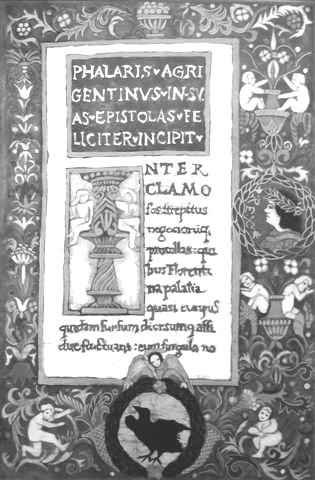 PHALARIS♥AGRI
GENTINVS♥IN♥SV
AS♥EPISTOLAS♥FE
LICITER♥INCIPIT♥
INTER
CLAMO
fos: strepitus
procellas: qui
bus Florenti
na palatia
quasi
quidam sursum
due fluctuant: singula no